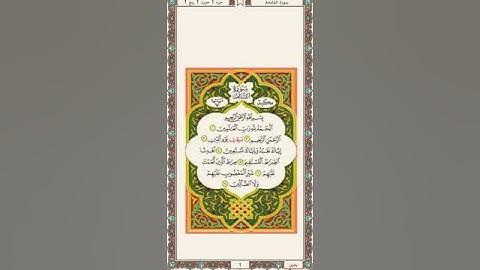 سورة الفاتحة
جزء ١ حزب ١ ربع ١
سُورَةُ
الفَاتِحَةِ
مكية
آياتها
بِسْمِ ٱللَّهِ ٱلرَّحْمَٰنِ ٱلرَّحِيمِ
ٱلْحَمْدُ لِلَّهِ رَبِّ ٱلْعَٰلَمِينَ
ٱلرَّحْمَٰنِ ٱلرَّحِيمِ مَٰلِكِ يَوْمِ ٱلدِّينِ
إِيَّاكَ نَعْبُدُ وَإِيَّاكَ نَسْتَعِينُ ٱهْدِنَا
ٱلصِّرَٰطَ ٱلْمُسْتَقِيمَ صِرَٰطَ ٱلَّذِينَ أَنْعَمْتَ
عَلَيْهِمْ غَيْرِ ٱلْمَغْضُوبِ عَلَيْهِمْ
وَلَا ٱلضَّآلِّينَ
١
يمين